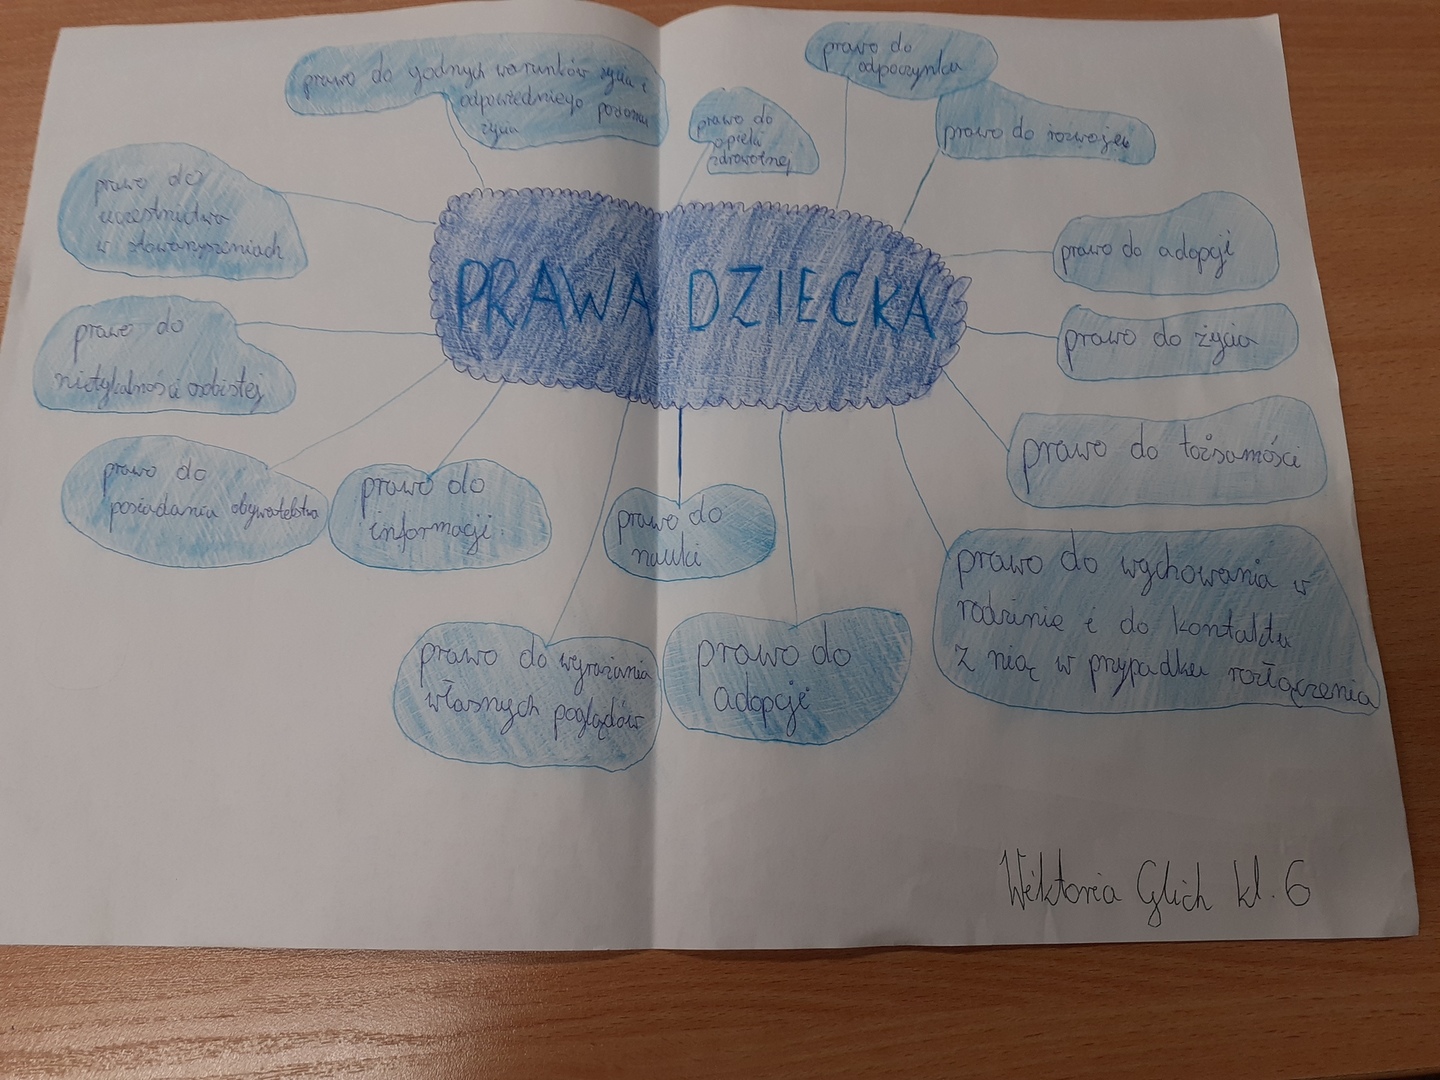 prawo do godnych warunków życia i
odpowiedniego poziomu
życia
prawo do
opieki
zdrowotnej
prawo do
odpoczynku
prawo do rozwoju
prawo do
uczestnictwa
w stowarzyszeniach
PRAWA DZIECKA
prawo do adopcji
prawo do
nietykalności osobistej
prawo do życia
prawo do
posiadania obywatelstwa
prawo do
informacji
prawo do
nauki
prawo do tożsamości
prawo do wychowania w
rodzinie i do kontaktu
z nią w przypadku rozłączenia
prawo do wyrażania
własnych poglądów
prawo do
adopcji
Wiktoria Glich kl. 6